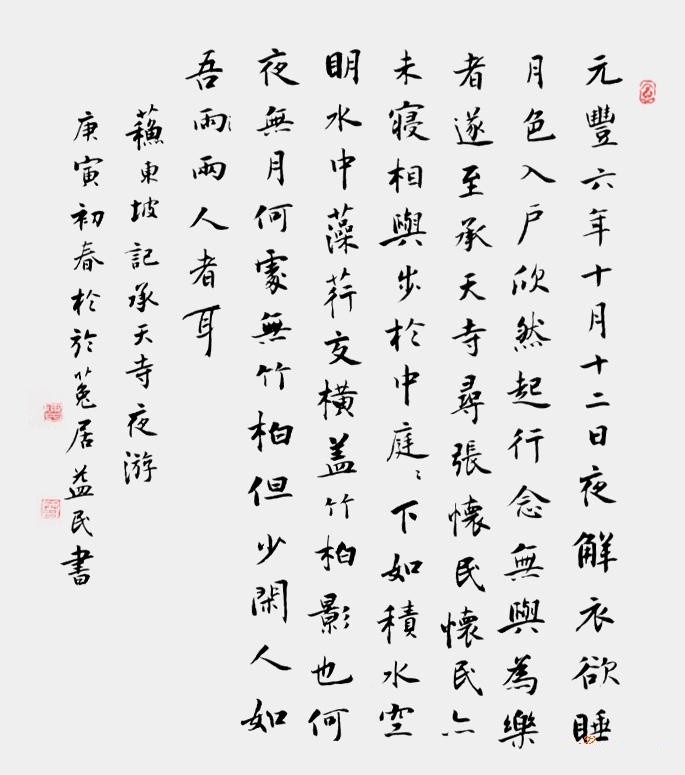 元豐六年十月十二日夜解衣欲睡
月色入户欣然起行念無與為樂
者遂至承天寺尋張懷民懷民亦
未寢相與步於中庭〻下如積水空
明水中藻荇交橫盖竹柏影也何
夜無月何處無竹柏但少閑人如
吾兩兩人者耳
蘓東坡記承天寺夜游
庚寅初春於於菟居益民書